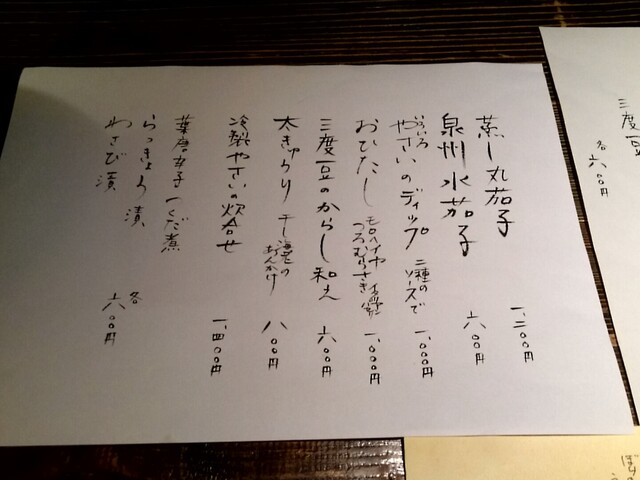 三度豆
各 六〇〇円
蒸し丸茄子 一、二〇〇円
泉州水茄子 六〇〇円
いろいろやさいのディップ 二種のソースで 一、〇〇〇円
おひたし モロヘイヤ つるむらさき 一、〇〇〇円
三度豆のからし和え 六〇〇円
太きゅうり 干し海老のあんかけ 八〇〇円
冷製やさいの炊合せ 一、四〇〇円
葉唐辛子つくだ煮
らっきょう漬
わさび漬
各 六〇〇円